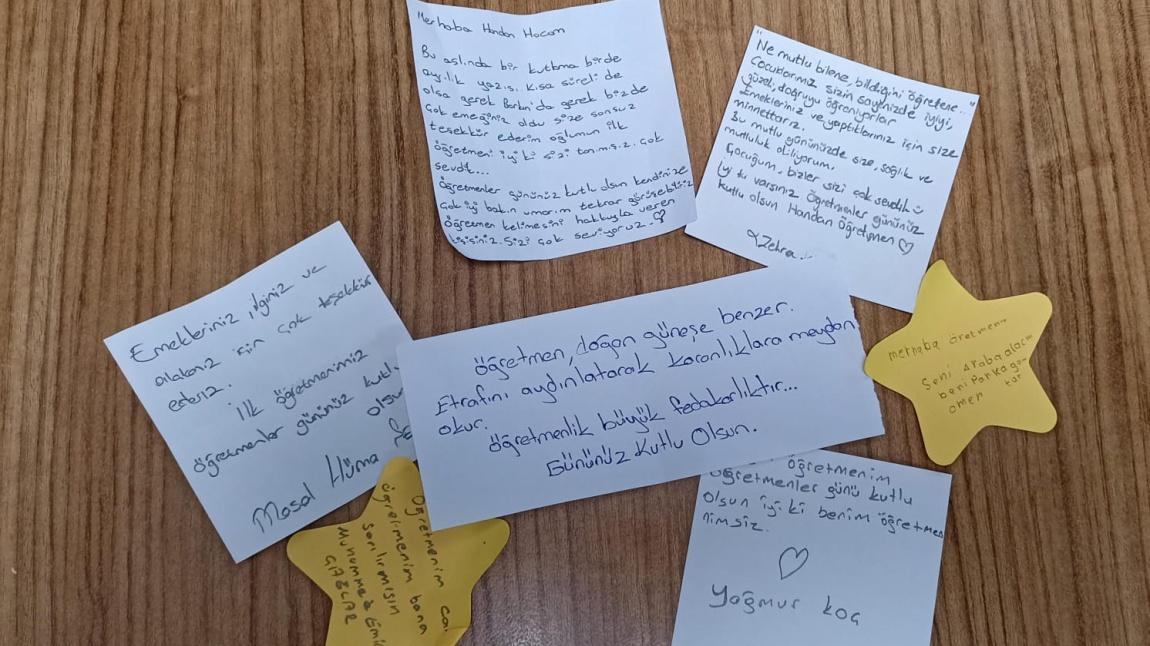 Merhaba Handan Hocam
Bu aslında bir kutlama birde
ayrılık yazısı. Kısa süreli de
olsa gerek Barkın'da gerek bizde
çok emeğiniz oldu size sonsuz
teşekkür ederim oğlumun ilk
öğretmeni iyi ki sizi tanımışız. çok
sevdik...
Öğretmenler gününüz kutlu olsun kendinize
çok iyi bakın umarım tekrar görüşebiliriz
Öğretmen kelimesini hakkıyla veren
kişisiniz. Sizi çok seviyoruz.
"Ne mutlu bilene, bildiğini öğretene.."
Çocuklarımız sizin sayenizde iyiyi,
güzeli, doğruyu öğreniyorlar
Emekleriniz ve yaptıklarınız için size
minnettarız.
Bu mutlu gününüzde size, sağlık ve
mutluluk diliyorum.
Çocuğum, bizler sizi çok sevdik
İyi ki varsınız Öğretmenler gününüz
kutlu olsun Handan Öğretmen
Zehra..
Emekleriniz, ilginiz ve
alakanız için çok teşekkür
ederiz.
İlk öğretmenimiz
öğretmenler gününüz kutlu
olsun
Masal Hüma
Öğretmen, doğan güneşe benzer.
Etrafını aydınlatarak karanlıklara meydan
okur.
Öğretmenlik büyük fedakarlıktır...
Gününüz Kutlu Olsun.
merhaba öretmen
Seni Araba alacm
beni Parka
Öğretmenim
bana
sarılırmısın
Muhammed Emi
öğretmenim
öğretmenler günü kutlu
olsun iyi ki benim öğretme
nimsiz.
Yağmur koç